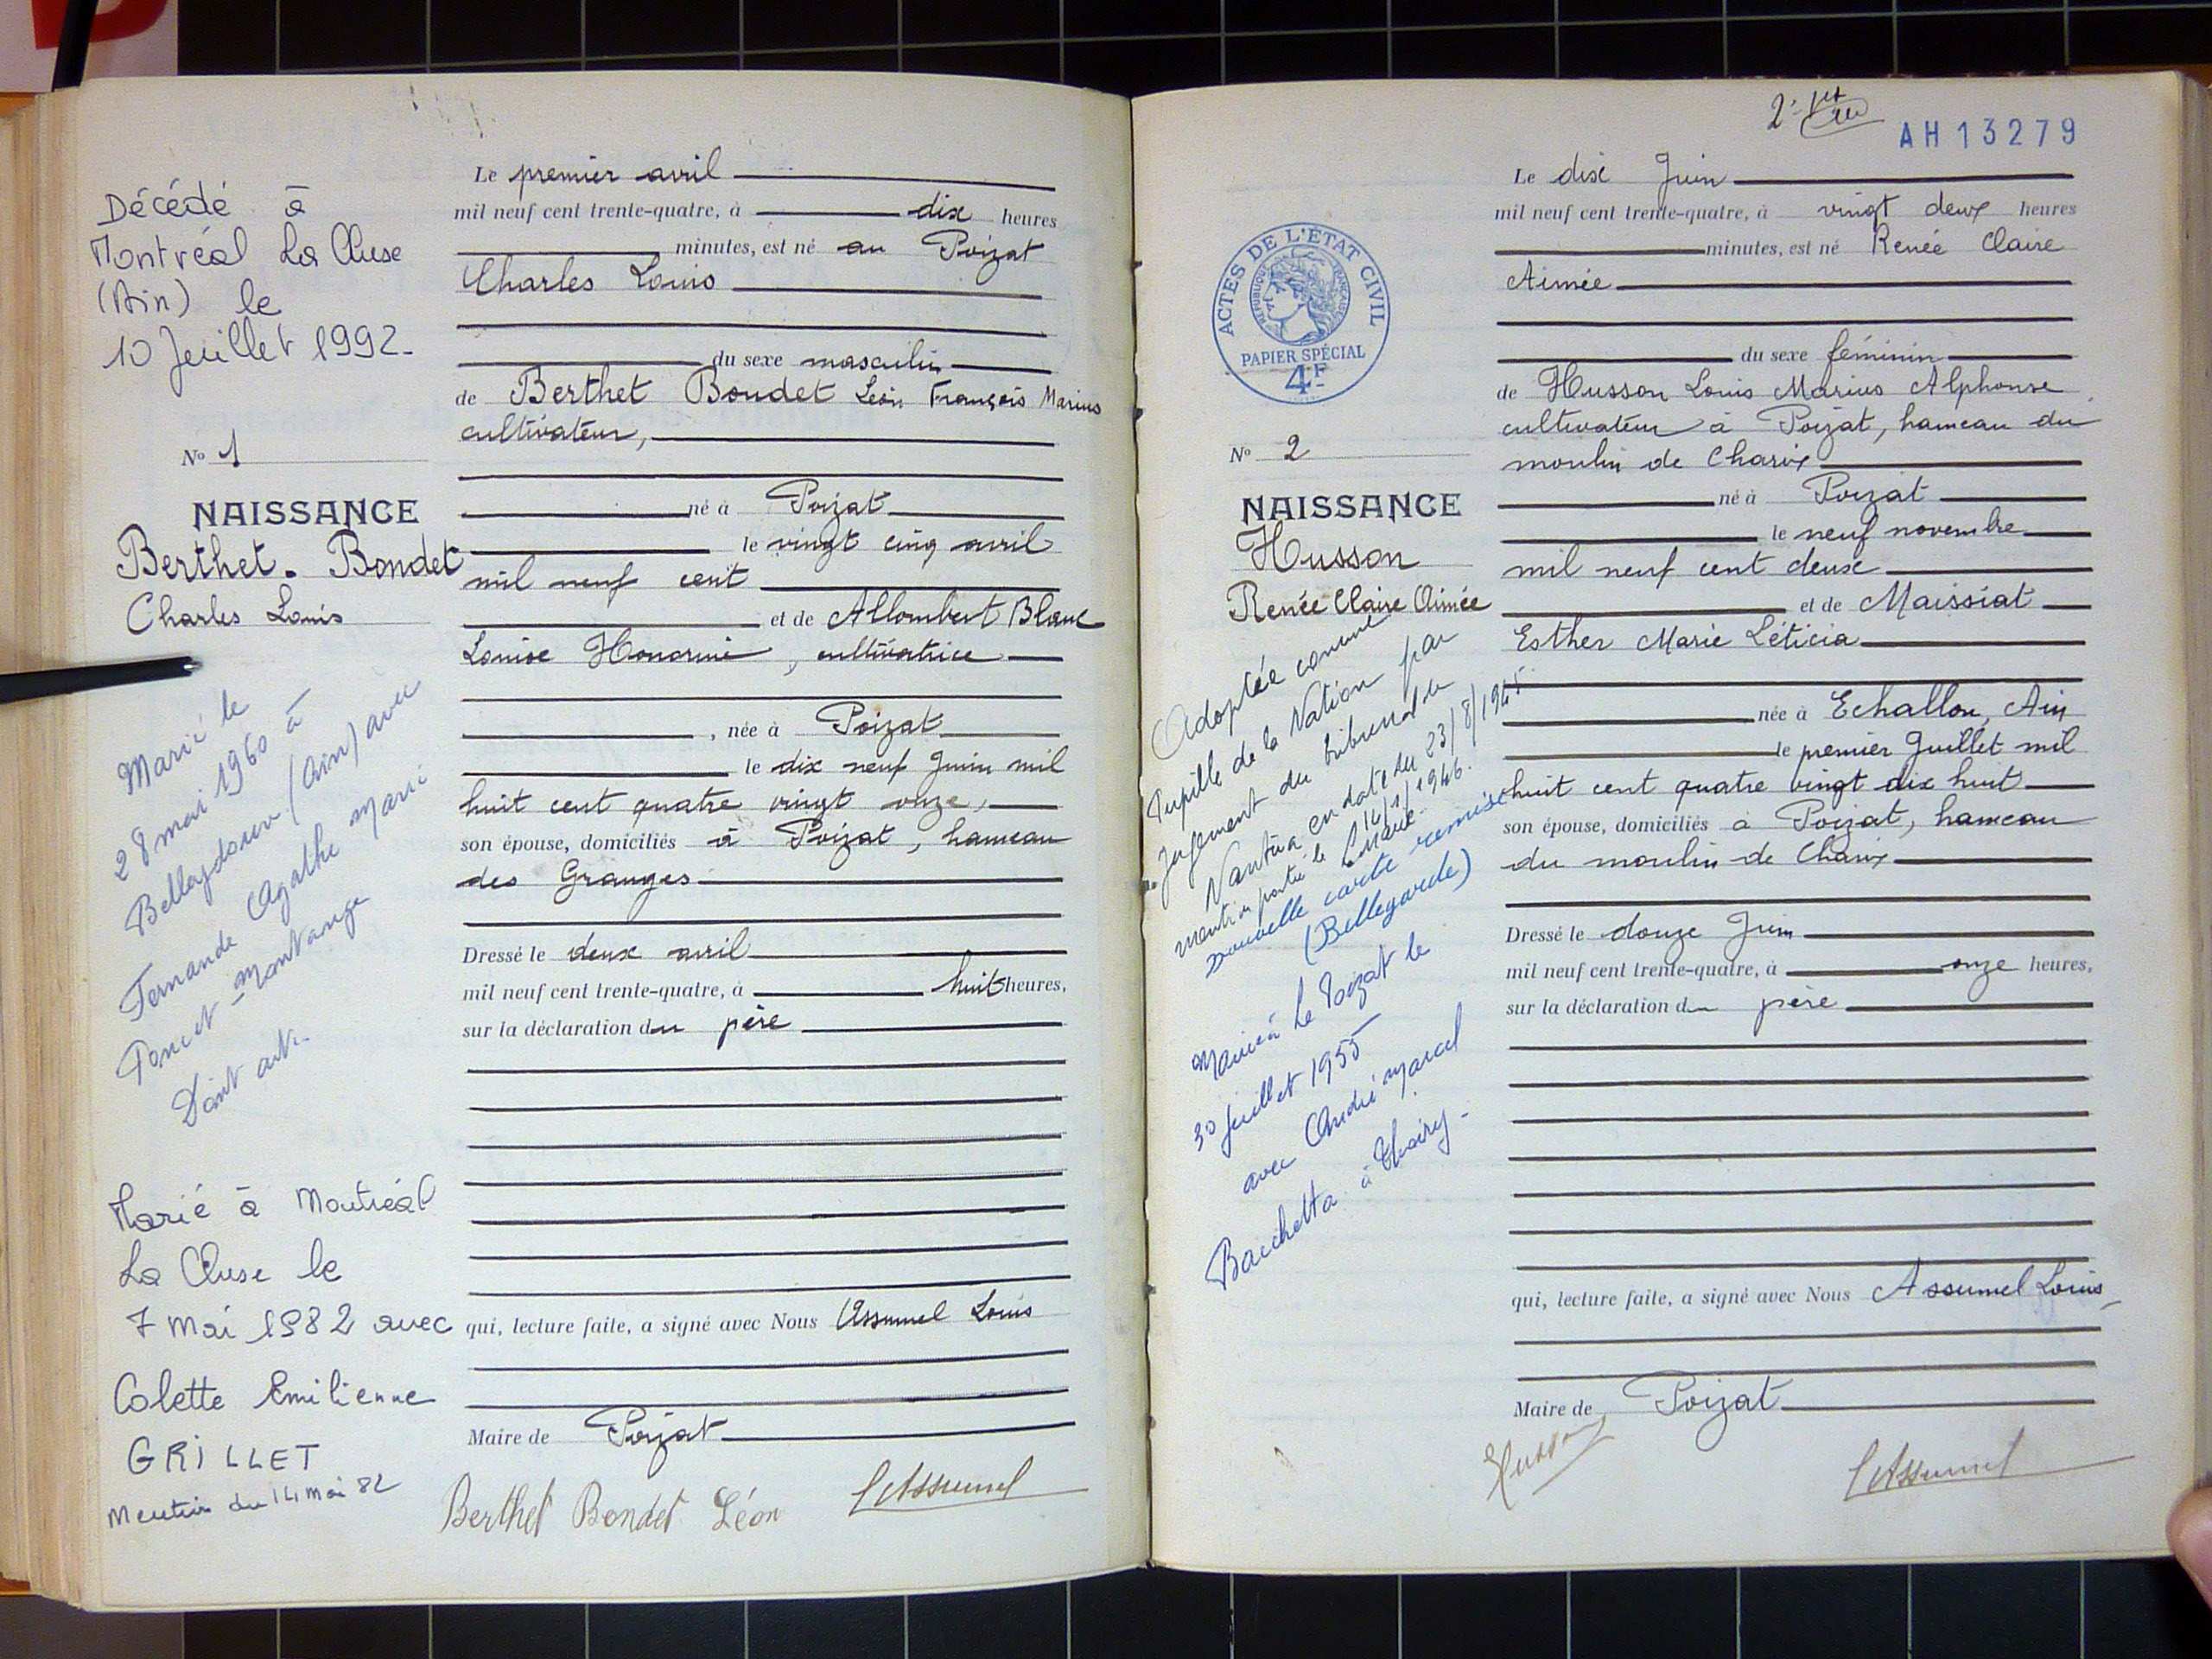 Décédé à
Montréal La Cluse
(Ain) le
10 Juillet 1992.
No 1
NAISSANCE
Berthet. Bondet
Charles Louis
Marié le
28 mai 1960 à
Belleydoux (Ain) avec
Fernande Agathe Marie
Poncet-Montange
Dont acte.
Marié à Montréal
La Cluse le
7 Mai 1982 avec
Colette Emilienne
GRILLET
Mention du 14 Mai 82
Le premier avril
mil neuf cent trente-quatre, à dix heures
minutes, est né au Poizat
Charles Louis
du sexe masculin
de Berthet Bondet Léon François Marius
cultivateur,
né à Poizat
le vingt cinq avril
mil neuf cent
et de Allombert Blanc
Louise Honorine, cultivatrice
, née à Poizat
le dix neuf Juin mil
huit cent quatre vingt onze,
son épouse, domiciliés à Poizat, hameau
des Granges
Dressé le deux avril
mil neuf cent trente-quatre, à huit heures,
sur la déclaration du père
qui, lecture faite, a signé avec Nous Assumel Louis
Maire de Poizat
Berthet Bondet Léon LAssumel
AH 13279
ACTES DE L'ÉTAT CIVIL
RÉPUBLIQUE FRANÇAISE
PAPIER SPÉCIAL
4F
No 2
NAISSANCE
Husson
Renée Claire Aimée
Adoptée comme
Pupille de la Nation par
Jugement du tribunal de
Nantua en date du 23/8/1945.
mention portée le 14/1/1946.
L. Maire.
Nouvelle carte remise
(Bellegarde)
Mariée à Le Poizat le
30 Juillet 1955
avec André Marcel
Bacchetta à Thoiry.
Le dix Juin
mil neuf cent trente-quatre, à vingt deux heures
minutes, est né Renée Claire
Aimée
du sexe féminin
de Husson Louis Marius Alphonse
cultivateur à Poizat, hameau du
moulin de Charix
né à Poizat
le neuf novembre
mil neuf cent deux
et de Maissiat
Esther Marie Léticia
née à Echallon, Ain
le premier Juillet mil
huit cent quatre vingt dix huit
son épouse, domiciliés à Poizat, hameau
du moulin de Charix
Dressé le douze Juin
mil neuf cent trente-quatre, à onze heures,
sur la déclaration du père
qui, lecture faite, a signé avec Nous Assumel Louis,
Maire de Poizat
Husson LAssumel